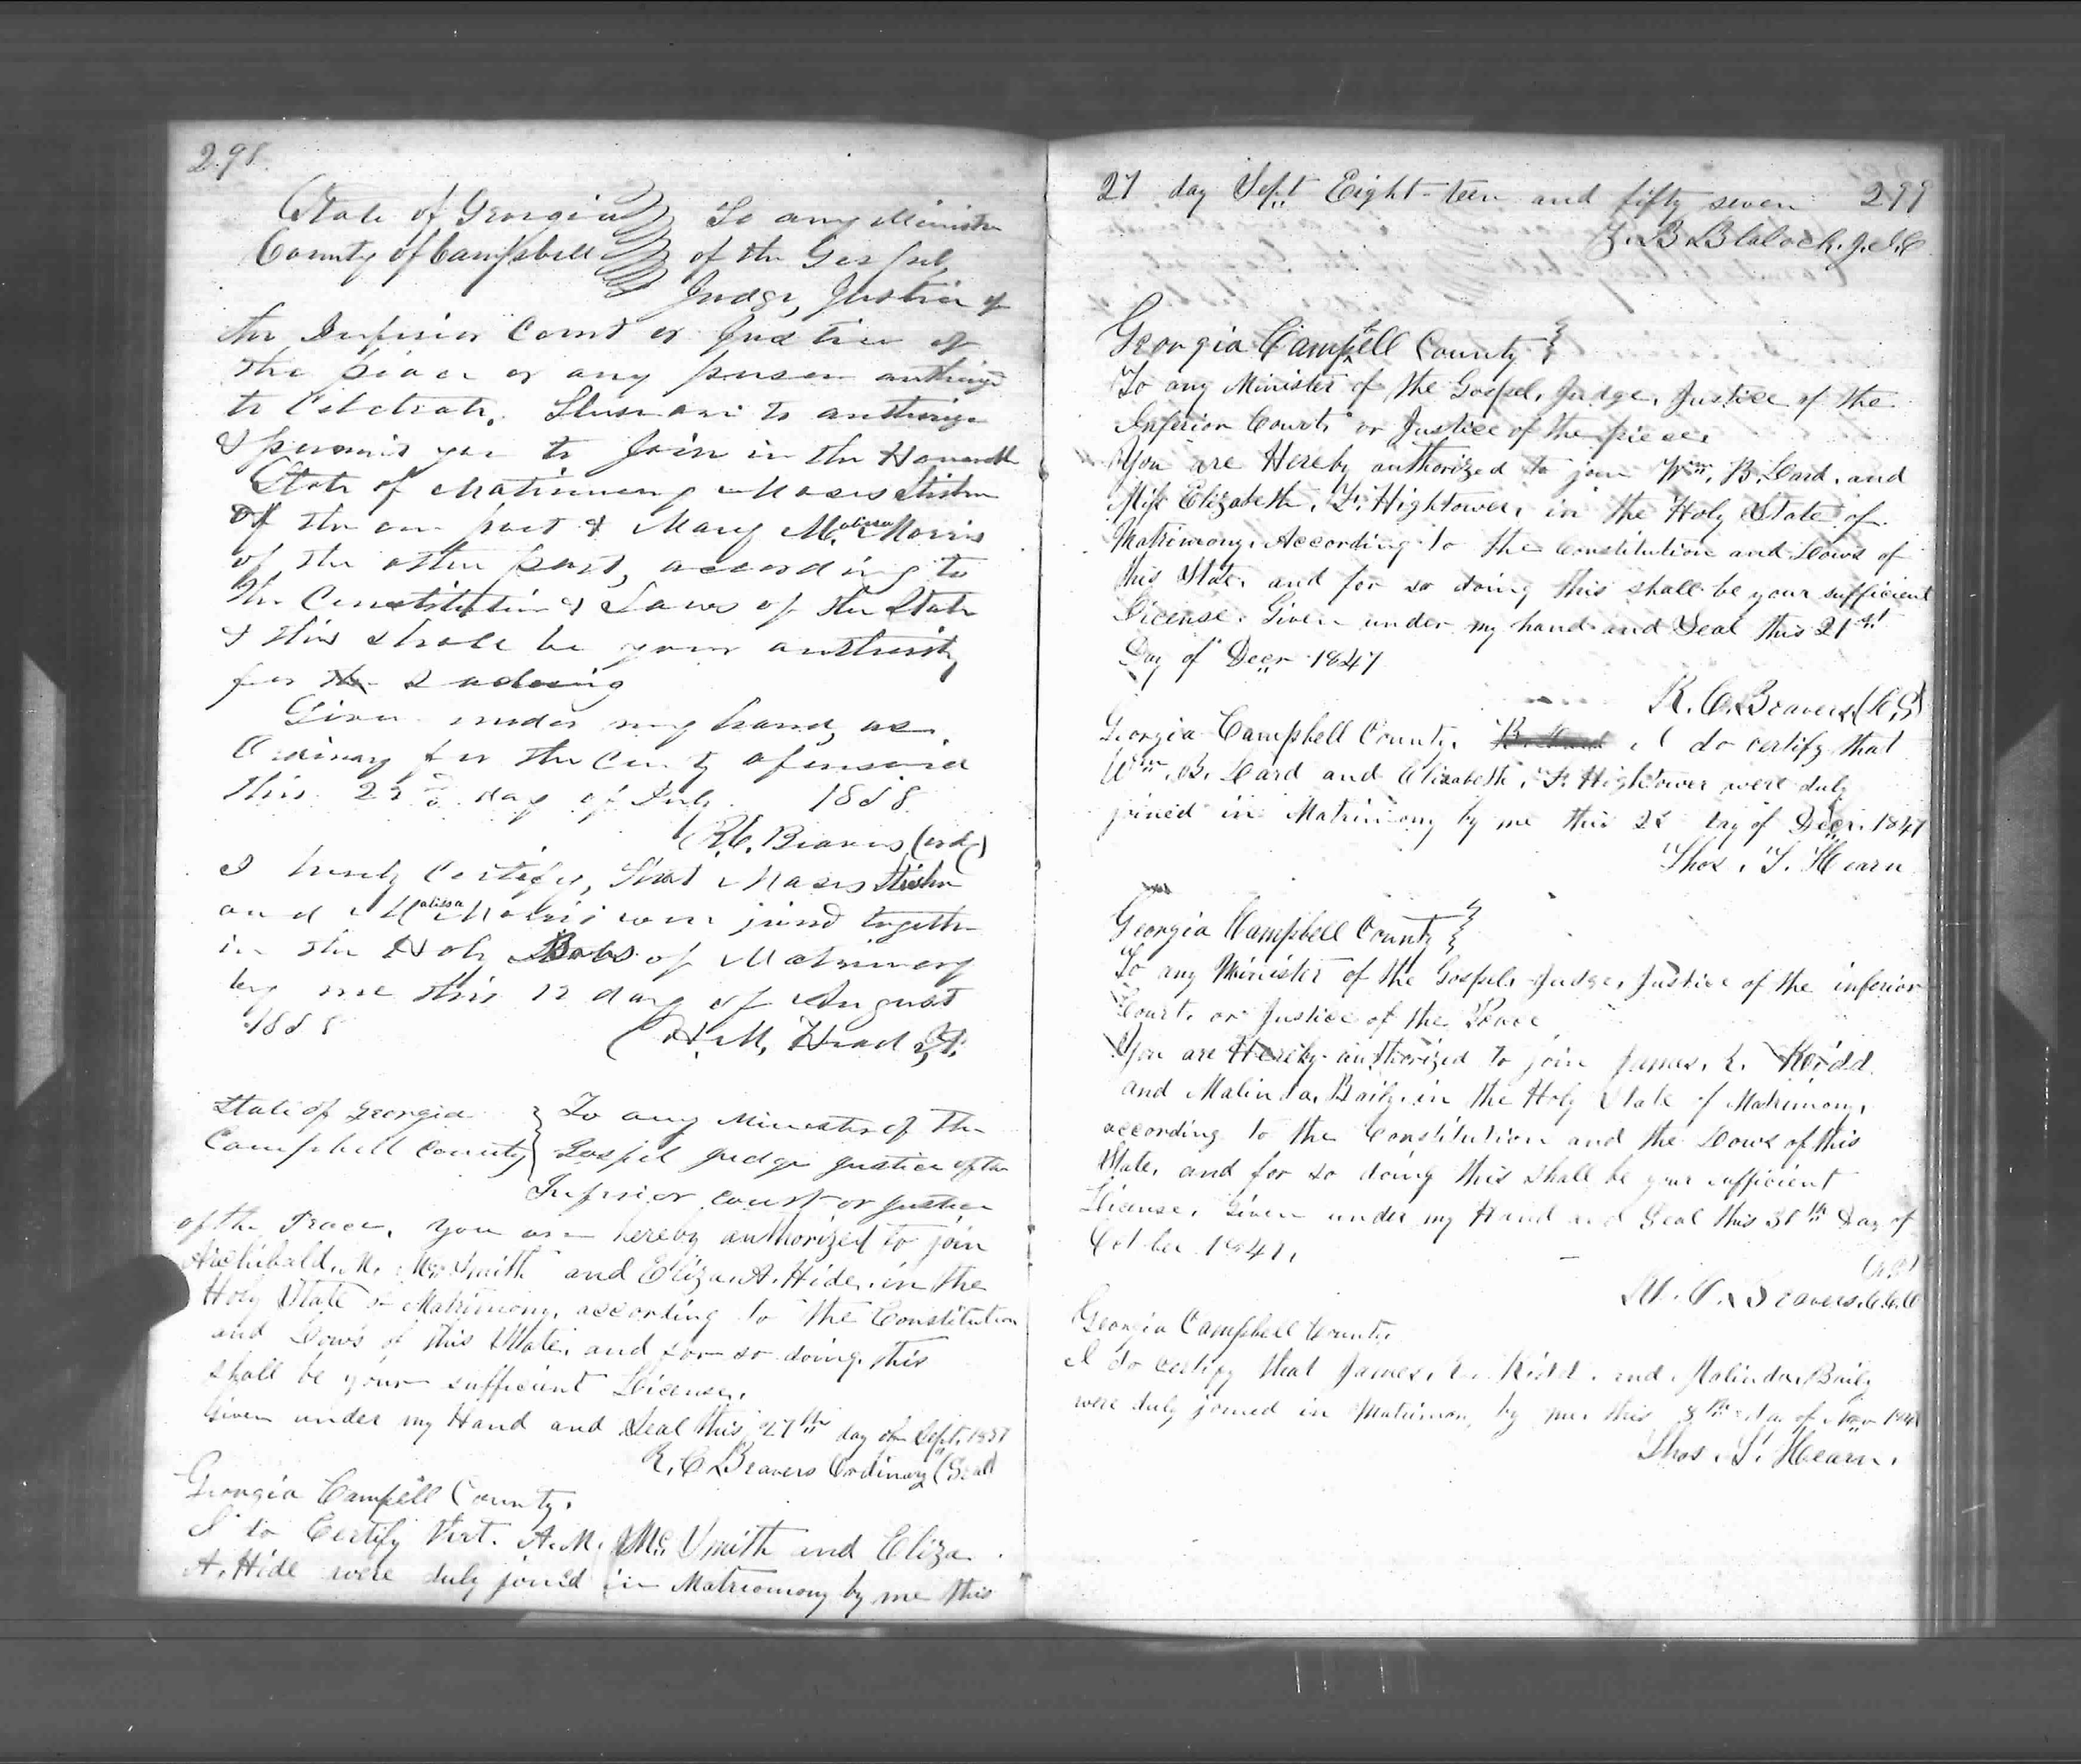 298.
State of Georgia To any Minister
County of Campbell of the Gospel,
Judge, Justice of
the Inferior Court or Justice of
the peace or any person authorized
to Celebrate. These are to authorize
& permit you to Join in the Honorable
State of Matrimony Moses
of the one part & Mary Malissa Morris
of the other part, according to
the Constitution & Laws of the State
& this shall be your authority
for the so doing
Given under my hand, as
Ordinary for the County aforesaid
this day of July 1858
R.C. Beavers (ord)
I hereby Certify, that Moses
and Malissa Morris were joined together
in the Holy of Matrimony
by me this 12 day of August
1858 H. M. Head
State of Georgia To any Minester of The
Campbell County Gospel Judge Justice of the
Inferior Court or Justice
of the Peace. You are hereby authorized to join
Archibald. M. Mc. Smith and Eliza. A. Hide. in the
Holy State of Matrimony, according to the Constitution
and Laws of this State. and for so doing. this
shall be your sufficient License.
Given under my Hand and Seal this 27th day of Sept. 1857
R. C Beavers Ordinary (Seal)
Georgia Campell County.
I do Certify that. A. M. Mc. Smith and Eliza
A. Hide were duly joined in Matrimony by me this
27 day Sept Eight-teen and fifty seven 299
B. Blalock. J. I. C
Georgia Campbell County
To any Minister of the Gospel, Judge, Justice of the
Inferior Court, or Justice of the piece.
You are Hereby authorized to join Wm. B. Lard. and
Miss Elizabeth. F. Hightower, in the Holy State of
Matrimony. According to the Constitution and Laws of
this State. and for so doing this shall be your sufficient
License. Given under my hand and Seal this 21st
Day of Decr 1847
R. C. Beavers (L,S)
Georgia Campbell County. I do certify that
Wm. B. Lard and Elizabeth. F. Hightower were duly
joined in Matrimony by me this day of Decr. 1847
Thos. T. Hearn
Georgia Campbell County
To any Minister of the Gospel, Judge, Justice of the inferior
Court. or Justice of the Peace
You are Hereby authorized to join James. E. Kidd
and Malinda, Baily. in the Holy State of Matrimony,
according to the Constitution and the Laws of this
State, and for so doing this shall be your sufficient
License. Given under my Hand and Seal this Day of
October 1847.
(L.S)
R. C. Beavers. C.C.O
Georgia Campbell County.
I do certify that James. E. Kidd. and Malinda, Baily
were duly joined in Matrimony by me this 8th day of Nov 1847
Thos. T. Hearn.